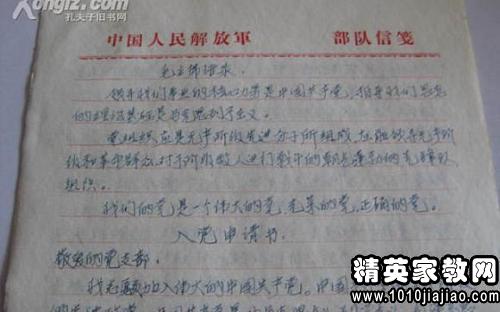 Kongfz.com
孔夫子旧书网
中国人民解放軍 部队信笺
毛主席语录.
领导我们事业的核心力量是中国共产党,指导我们思想
的理论基础是马克思列宁主义。
党组织应是无产阶级先进分子所组成,应能领导无产阶
级和革命群众对于阶级敌人进行战斗的朝气蓬勃的先锋队
组织。
我们的党是一个伟大的党,光荣的党,正确的党。
入党申请书.
敬爱的党支部:
我志愿加入伟大的中国共产党。中国
精英家教网
www.1010jiajiao.com